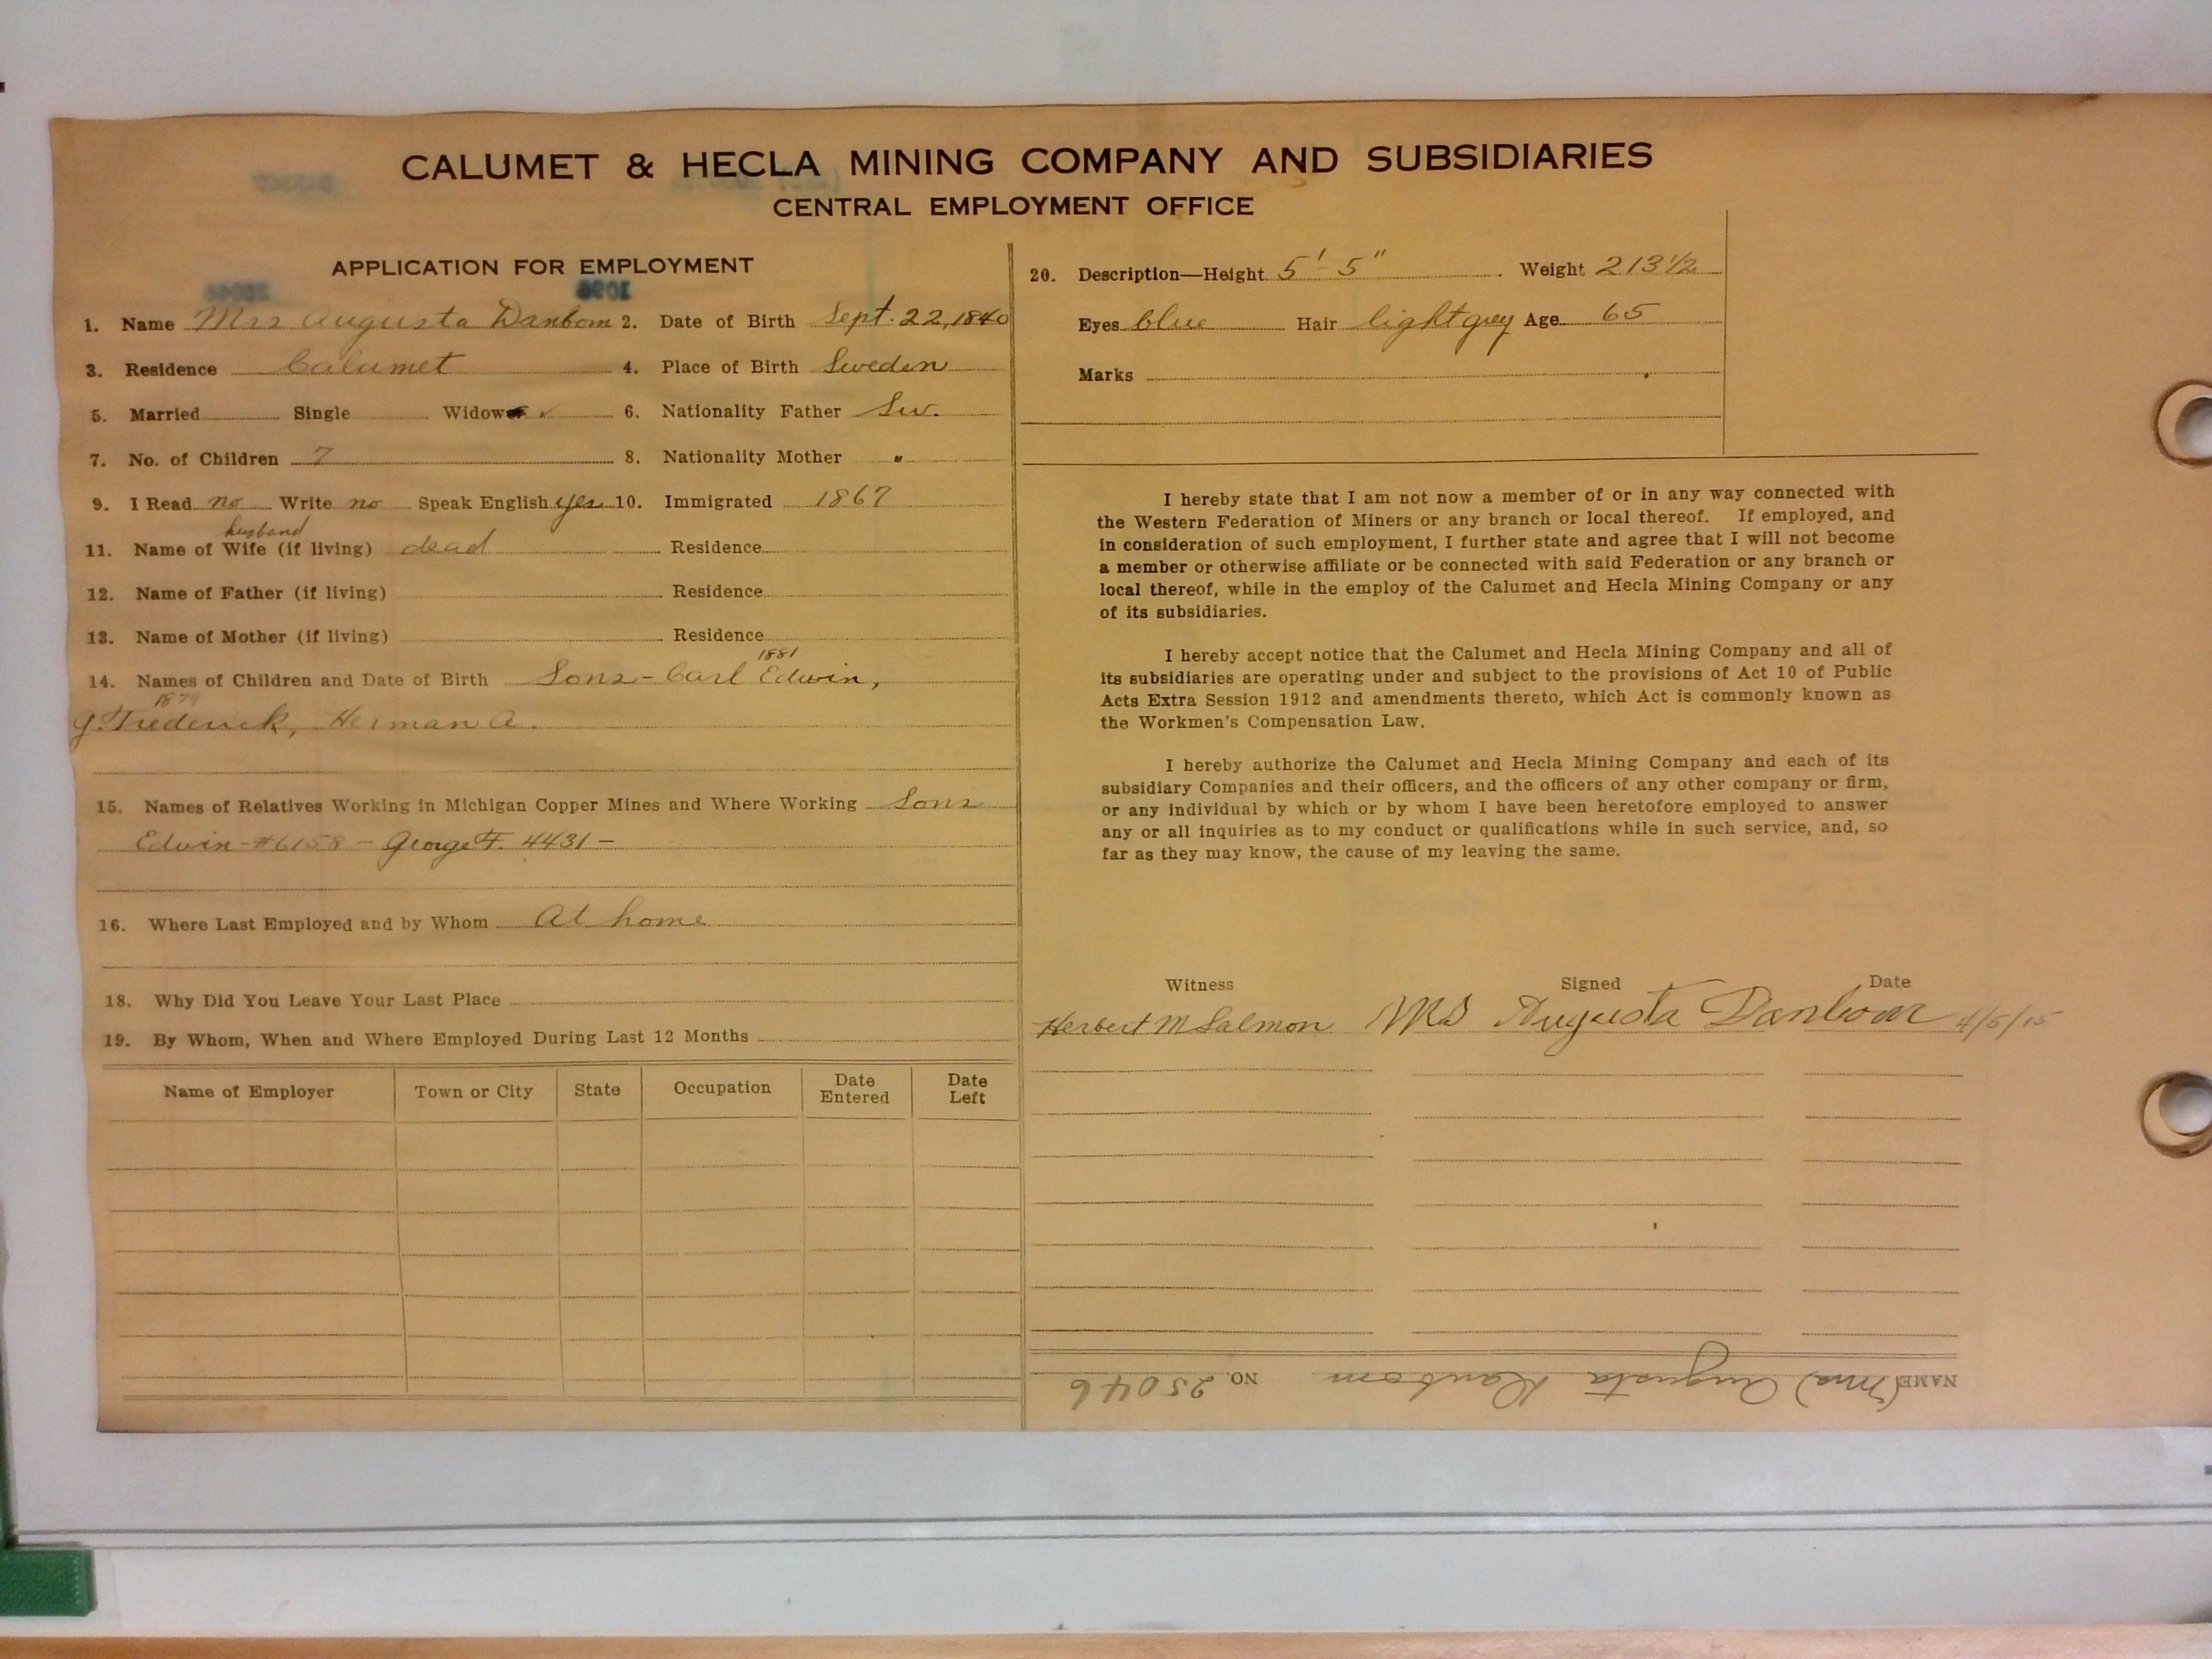 CALUMET & HECLA MINING COMPANY AND SUBSIDIARIES
CENTRAL EMPLOYMENT OFFICE
APPLICATION FOR EMPLOYMENT
1. Name Mrs Augusta Danbom 2. Date of Birth Sept. 22, 1840
3. Residence Calumet 4. Place of Birth Sweden
5. Married Single Widow ✓ 6. Nationality Father Sw.
7. No. of Children 7 8. Nationality Mother "
9. I Read no Write no Speak English yes 10. Immigrated 1867
husband
11. Name of Wife (if living) dead Residence
12. Name of Father (if living) Residence
13. Name of Mother (if living) Residence
1881
14. Names of Children and Date of Birth Sons - Carl Edwin,
1879
G. Frederick, Herman A.
15. Names of Relatives Working in Michigan Copper Mines and Where Working Sons
Edwin - #6158 - George F. 4431 -
16. Where Last Employed and by Whom At home
18. Why Did You Leave Your Last Place
19. By Whom, When and Where Employed During Last 12 Months
Name of Employer Town or City State Occupation Date Entered Date Left
20. Description—Height 5' - 5" . Weight 213 1/2
Eyes blue Hair light grey Age 65
Marks
I hereby state that I am not now a member of or in any way connected with
the Western Federation of Miners or any branch or local thereof. If employed, and
in consideration of such employment, I further state and agree that I will not become
a member or otherwise affiliate or be connected with said Federation or any branch or
local thereof, while in the employ of the Calumet and Hecla Mining Company or any
of its subsidiaries.
I hereby accept notice that the Calumet and Hecla Mining Company and all of
its subsidiaries are operating under and subject to the provisions of Act 10 of Public
Acts Extra Session 1912 and amendments thereto, which Act is commonly known as
the Workmen's Compensation Law.
I hereby authorize the Calumet and Hecla Mining Company and each of its
subsidiary Companies and their officers, and the officers of any other company or firm,
or any individual by which or by whom I have been heretofore employed to answer
any or all inquiries as to my conduct or qualifications while in such service, and, so
far as they may know, the cause of my leaving the same.
Witness Signed Date
Herbert M Salmon Mrs Augusta Danbom 4/5/15
NAME (Mrs) Augusta Danbom NO. 25046